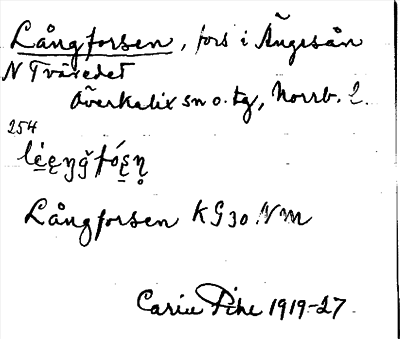 Långforsen, fors i Ängesån
N Tväredet
Överkalix sn o. tg, Norrb. l.
254
Långforsen KG 30 NM
Carin Pihl 1919-27.